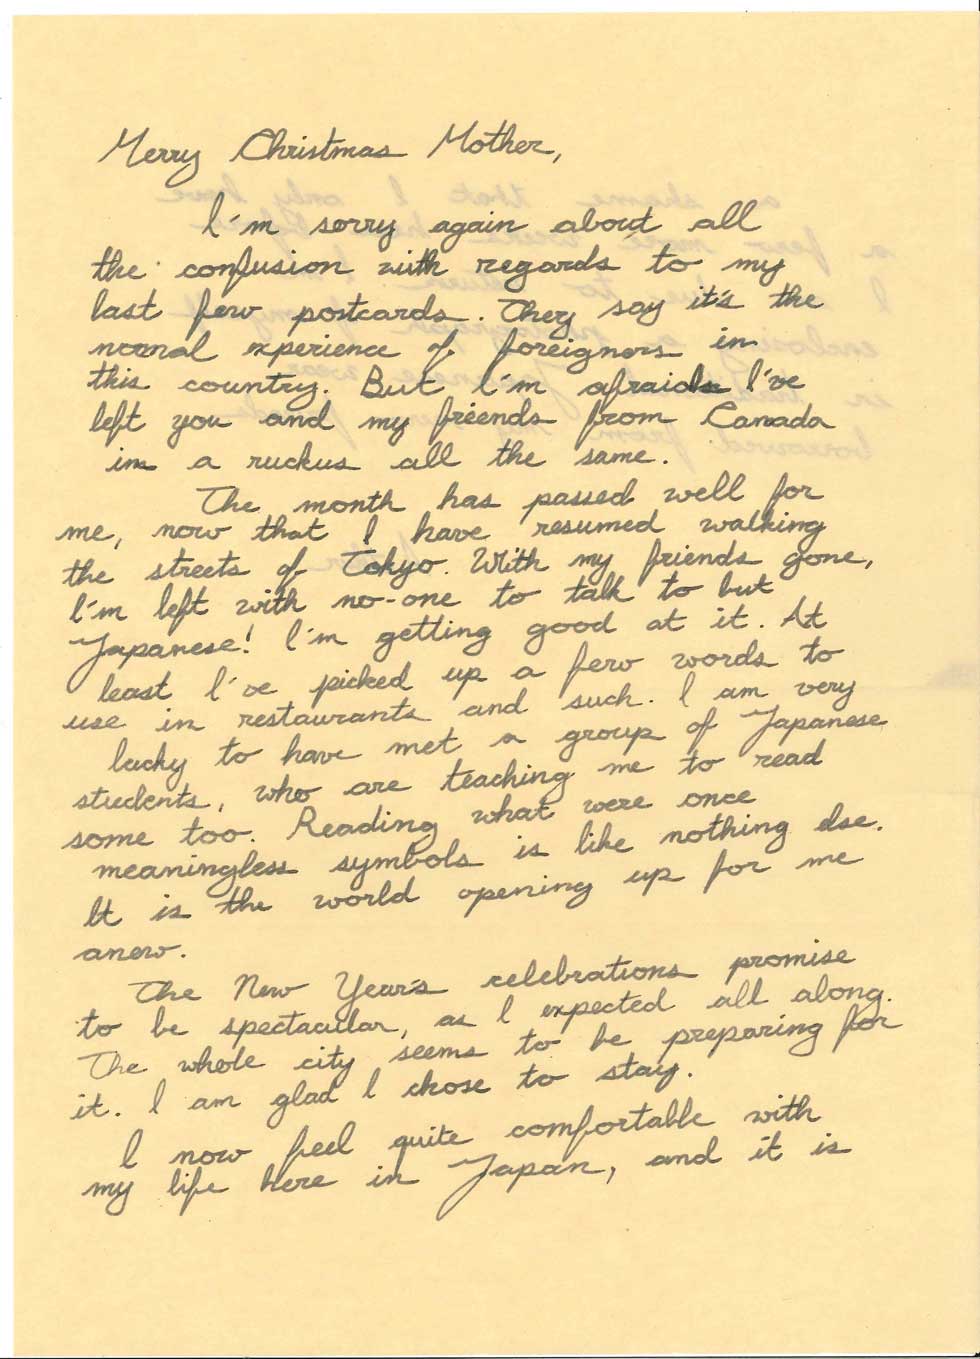 Merry Christmas Mother,
I'm sorry again about all
the confusion with regards to my
last few postcards. They say it's the
normal experience of foreigners in
this country. But I'm afraid I've
left you and my friends from Canada
in a ruckus all the same.
The month has passed well for
me, now that I have resumed walking
the streets of Tokyo. With my friends gone,
I'm left with no-one to talk to but
Japanese! I'm getting good at it. At
least I've picked up a few words to
use in restaurants and such. I am very
lucky to have met a group of Japanese
students, who are teaching me to read
some too. Reading what were once
meaningless symbols is like nothing else.
It is the world opening up for me
anew.
The New Year's celebrations promise
to be spectacular, as I expected all along.
The whole city seems to be preparing for
it. I am glad I chose to stay.
I now feel quite comfortable with
my life here in Japan, and it is